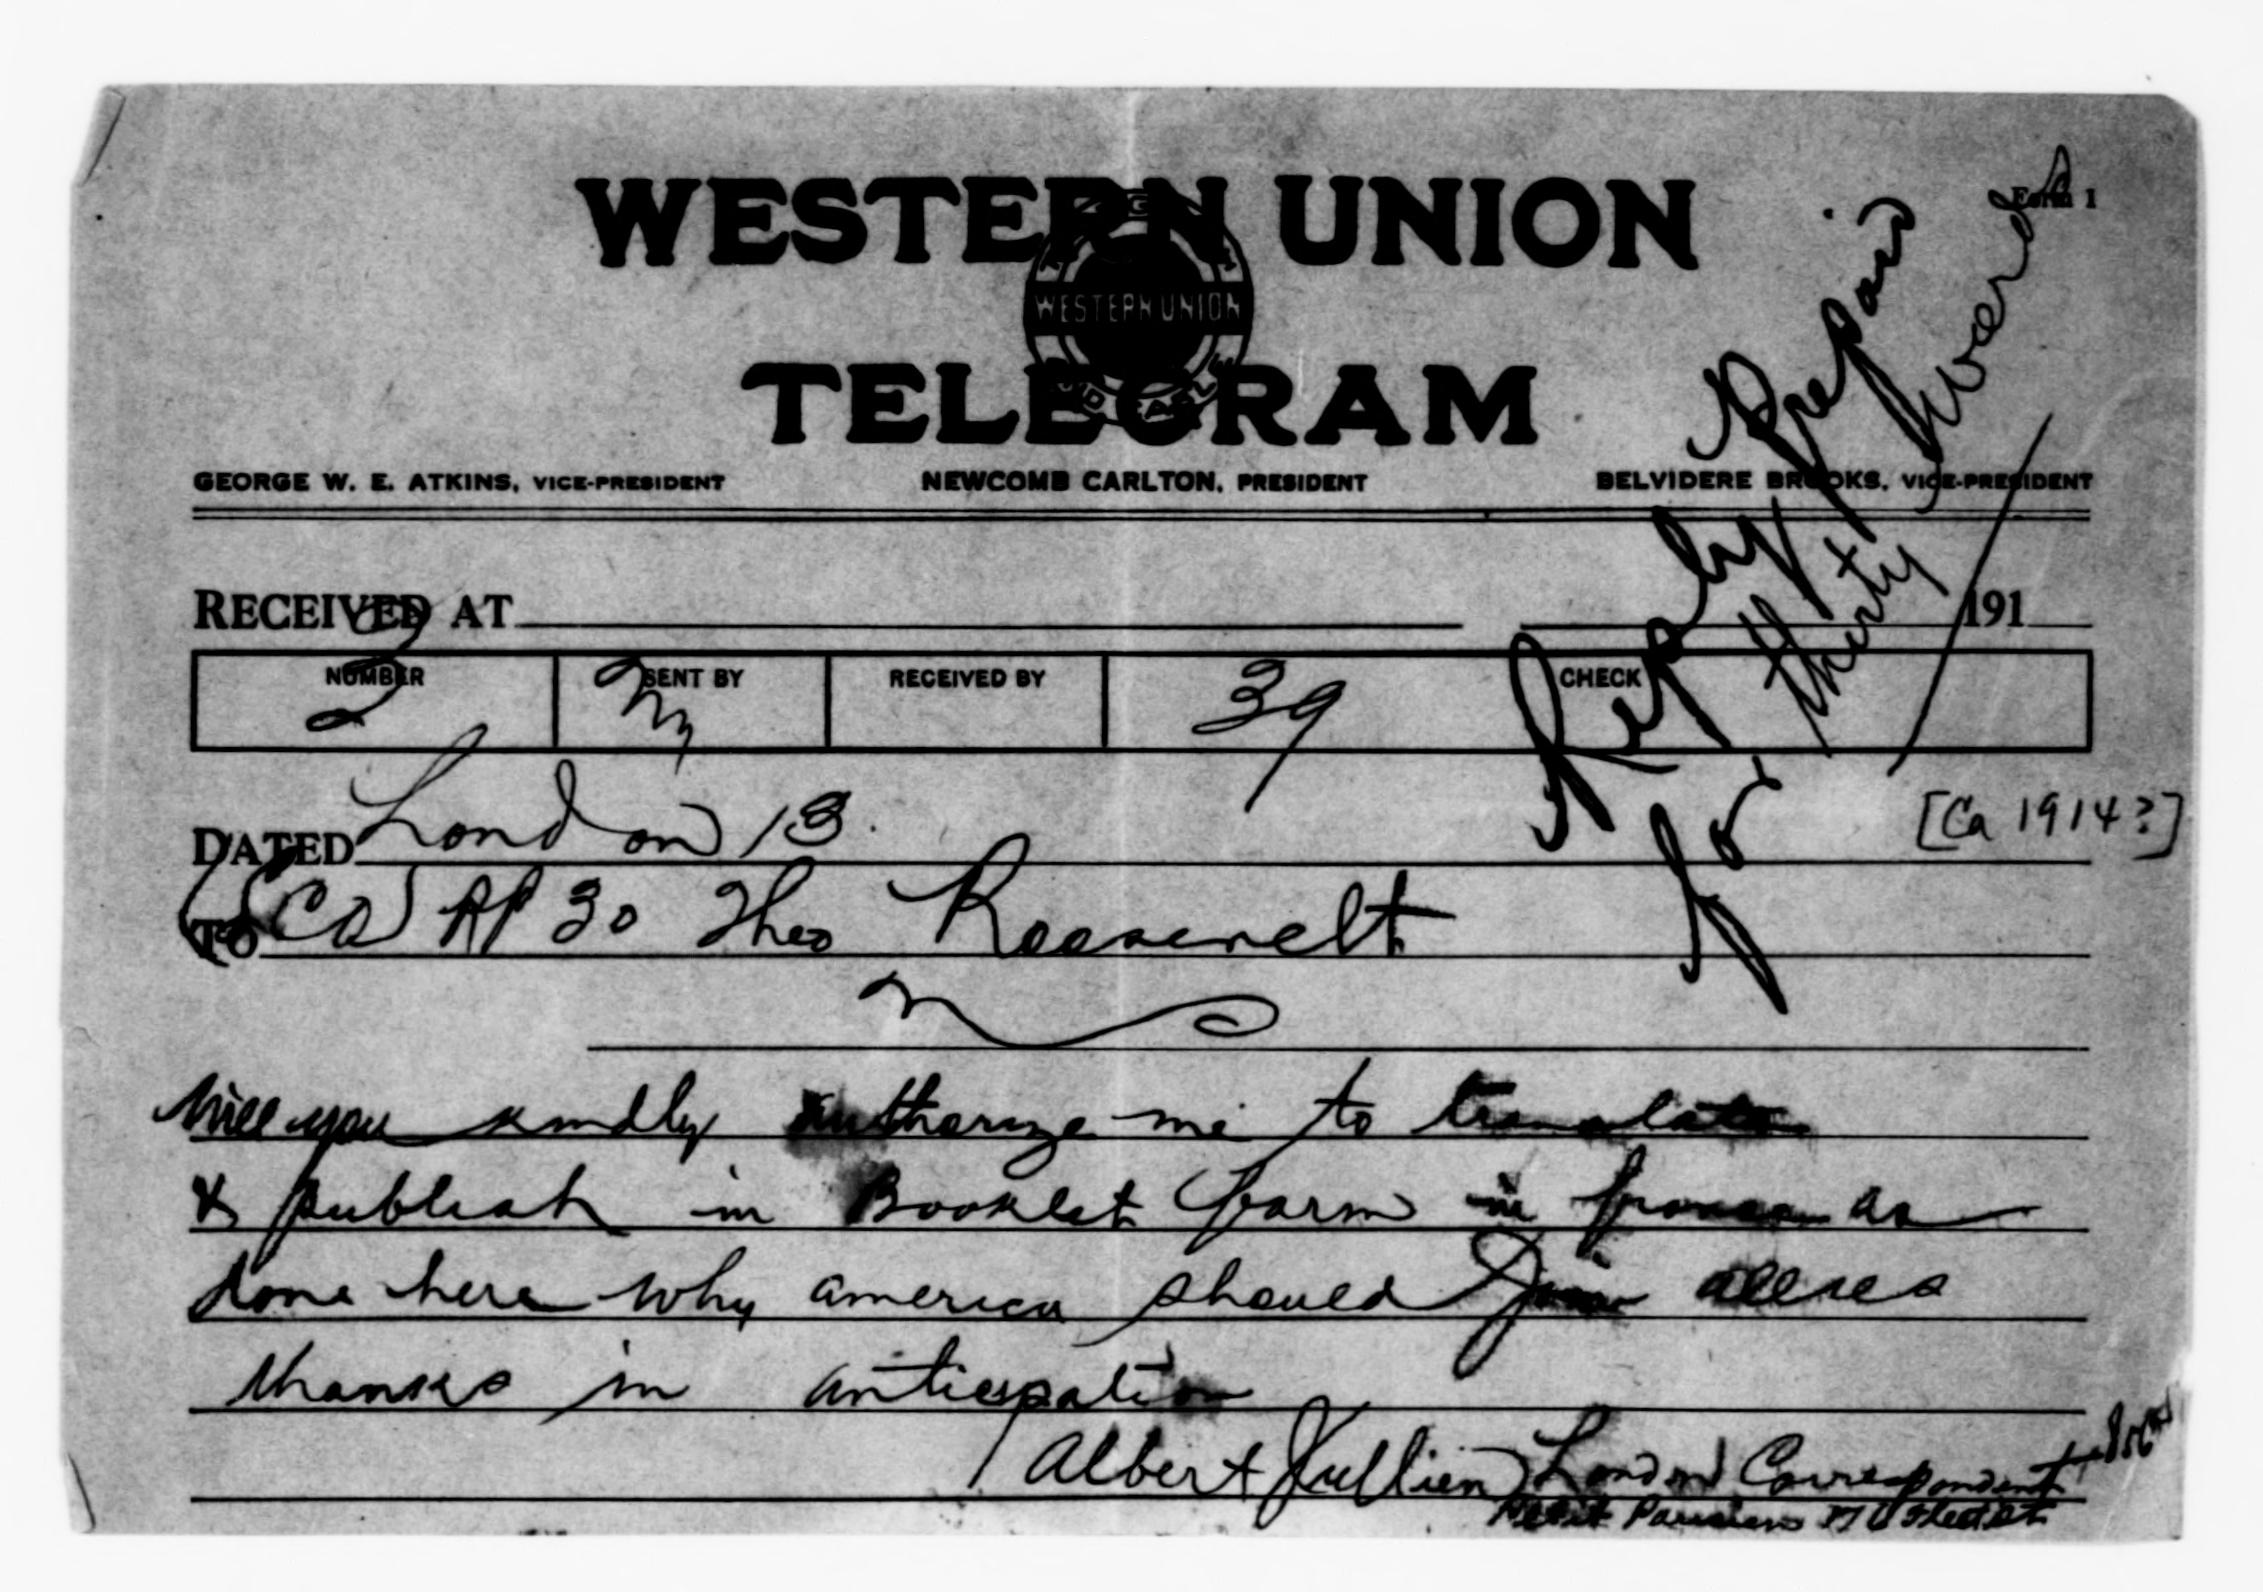 Form 1
WESTERN UNION
WESTERN UNION
TELEGRAM
GEORGE W. E. ATKINS, VICE-PRESIDENT NEWCOMB CARLTON, PRESIDENT BELVIDERE BROOKS, VICE-PRESIDENT
Reply Prepaid
for thirty words
RECEIVED AT 191
NUMBER SENT BY RECEIVED BY CHECK
2 39
DATED London 13
[Ca 1914?]
TO RP 30 Theo Roosevelt
Will you kindly authorize me to translate
& publish in Booklet form in france as
done here why america should join allies
thanks in anticipation
Albert Jullien London Correspondent
Petit Parisien Fleet St